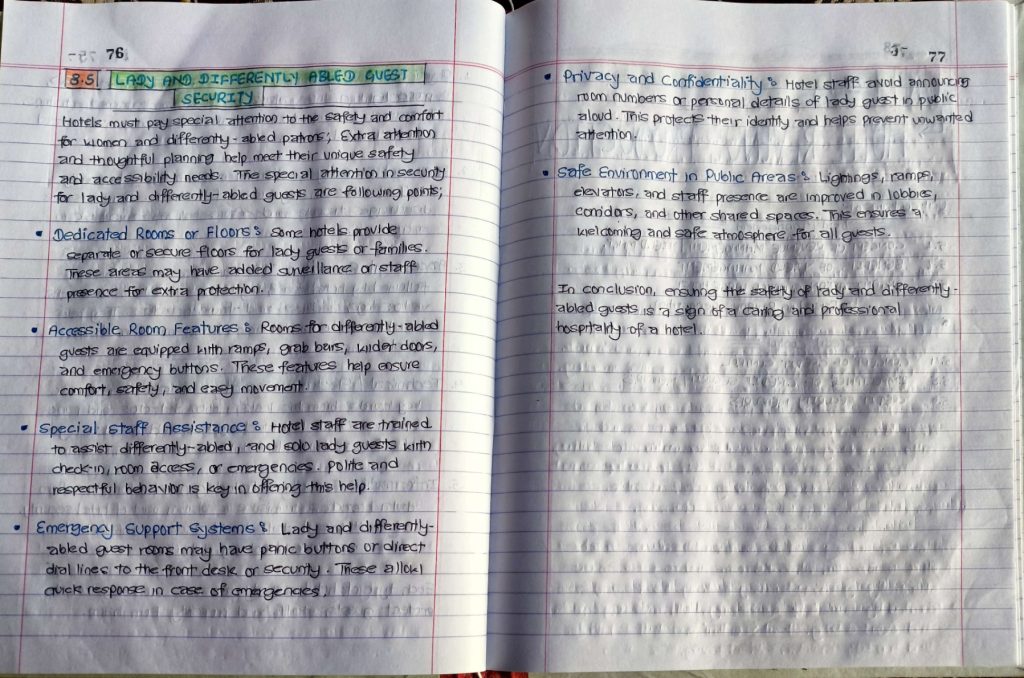 76
8.5 LADY AND DIFFERENTLY ABLED GUEST
SECURITY
Hotels must pay special attention to the safety and comfort
for women and differently-abled patrons; Extra attention
and thoughtful planning help meet their unique safety
and accessability needs. The special attention in security
for lady and differently-abled guests are following points;
• Dedicated Rooms or Floors: Some hotels provide
separate or secure floors for lady guests or families.
These areas may have added surveillance or staff
presence for extra protection.
• Accessible Room Features: Rooms for differently-abled
guests are equipped with ramps, grab bars, wider doors,
and emergency buttons. These features help ensure
comfort, safety, and easy movement.
• Special Staff Assistance: Hotel staff are trained
to assist differently-abled, and solo lady guests with
check-in, room access, or emergencies. Polite and
respectful behavior is key in offering this help.
• Emergency Support Systems: Lady and differently-
abled guest rooms may have panic buttons or direct
dial lines to the front desk or security. These allow
quick response in case of emergencies.
77
• Privacy and Confidentiality: Hotel staff avoid announcing
room numbers or personal details of lady guest in public
aloud. This protects their identity and helps prevent unwanted
attention.
• Safe Environment in Public Areas: Lightings, ramps,
elevators, and staff presence are improved in lobbies,
corridors, and other shared spaces. This ensures a
welcoming and safe atmosphere for all guests.
In conclusion, ensuring the safety of lady and differently-
abled guests is a sign of a caring and professional
hospitality of a hotel.